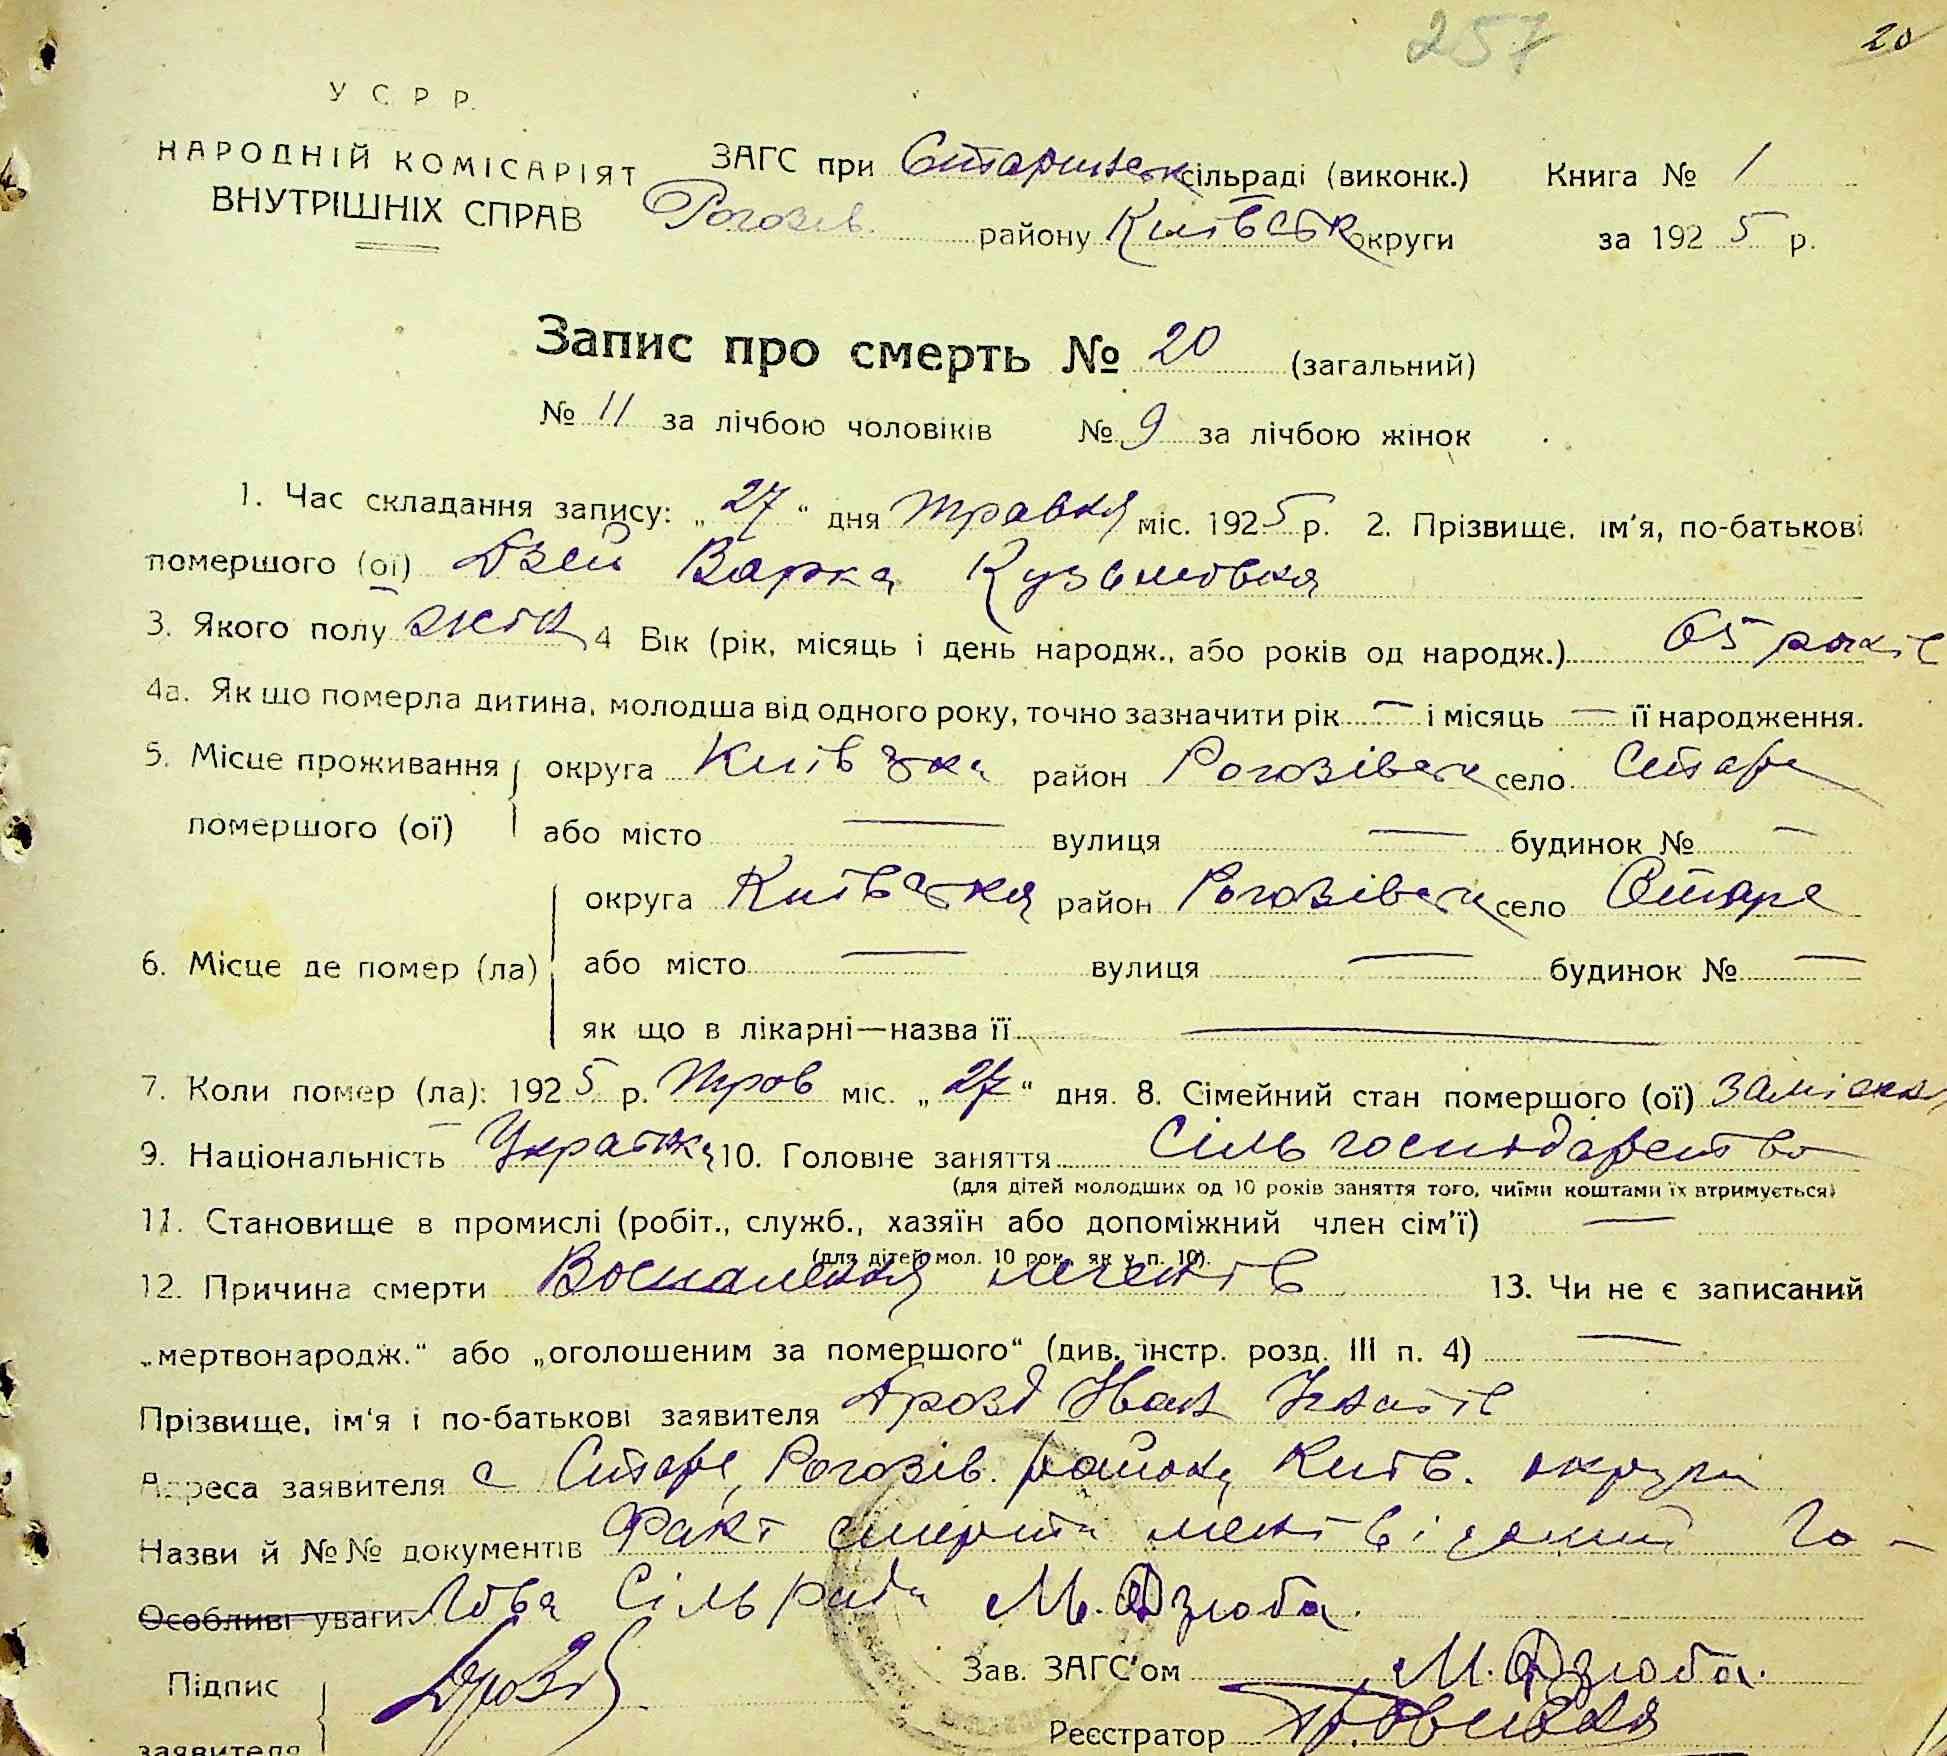 257
20
У С Р Р.
НАРОДНІЙ КОМІСАРІЯТ
ВНУТРІШНІХ СПРАВ
ЗАГС при Старинськ сільраді (виконк.) Книга № 1
Рогозів. району Київськ округи за 1925 р.
Запис про смерть № 20 (загальний)
№ 11 за лічбою чоловіків № 9 за лічбою жінок
1. Час складання запису: „27“ дня травня міс. 1925 р. 2. Прізвище, ім'я, по-батькові
помершого (ої) Дзей Варка Кузьмовна
3. Якого полу жін 4 Вік (рік, місяць і день народж., або років од народж.) 65 років
4а. Як що померла дитина, молодша від одного року, точно зазначити рік — і місяць — її народження.
5. Місце проживання округа Київска район Рогозівськ село Старе
помершого (ої) або місто — вулиця — будинок № —
округа Київська район Рогозівськ село Старе
6. Місце де помер (ла) або місто — вулиця — будинок № —
як що в лікарні—назва її —
7. Коли помер (ла): 1925 р. Трав міс. „27“ дня. 8. Сімейний стан помершого (ої)
9. Національність Українка 10. Головне заняття Сільгосподарство
(для дітей молодших од 10 років заняття того, чиїми коштами їх втримується)
11. Становище в промислі (робіт., служб., хазяїн або допоміжний член сім'ї) —
(для дітей мол. 10 рок. як у п. 10).
12. Причина смерти Воспалення легенів 13. Чи не є записаний
„мертвонародж.“ або „оголошеним за помершого“ (див. інстр. розд. III п. 4) —
Прізвище, ім'я і по-батькові заявителя Дрозд Іван Гнатів
Адреса заявителя с Старе, Рогозів. району Київ. округи
Назви й №№ документів Факт смерти Го-
Особливі уваги лова Сільради М. Дзюба.
Підпис Дрозд Зав. ЗАГС'ом М. Дзюба.
заявителя Реєстратор